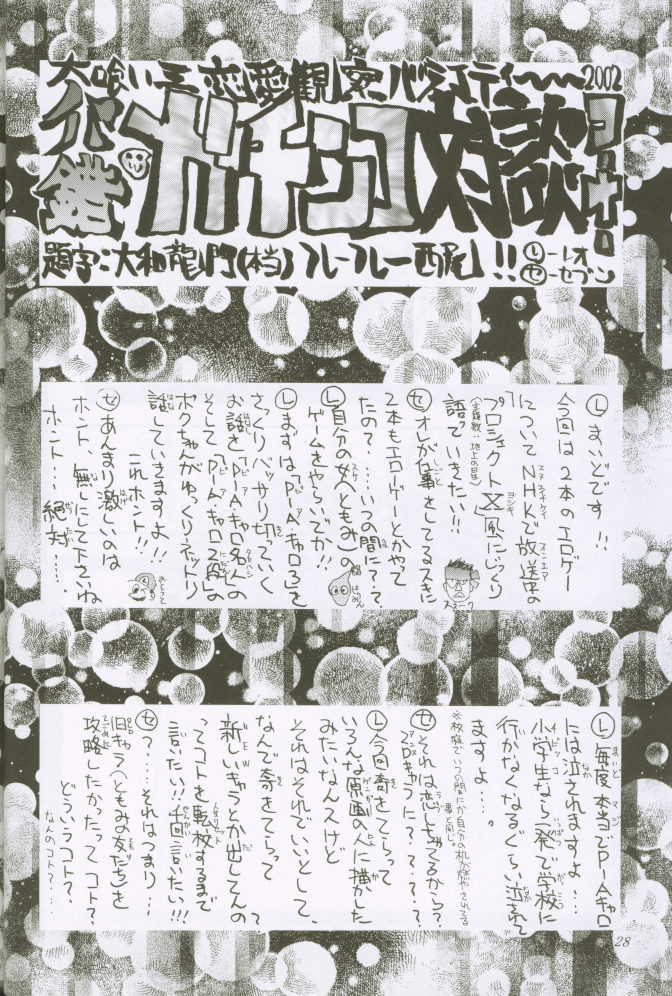 大喰い王恋愛観察バラエティー〜〜2002
ガチンコ対談
題字:大和龍門(本当)フレーフレー西尾!!
レーレオ
セーセブン
レ まいどです!!
今回は2本のエロゲー
についてNHKで放送中の
「プロジェクトX」風にじっくり
語っていきたい!!
セ オレが仕事をしてるスキに
2本もエロゲーとかやって
たの?……いつの間に??
レ 自分の女(ともみ)の
ゲームをやらいでか!!
レ まずは、「Pia・キャロ3を
さっくりバッサリ切っていく
お話を「Pia・キャロ名人の
そして、「Pia・キャロ2」
ボクちゃんがゆっくりネットリ
話していきますよ!!
これホント!!
セ あんまり激しいのは
ホント、無しにして下さいね
ホント……絶対……
レ 毎度本当でPiaキャロ
には泣されますよ…
小学生なら一発で学校に
行かなくなるぐらい泣されて
ますよ…。
セ それは恋しちゃてるから?
二次キャラに?????
レ 今回奇をてらって
いろんな原画の人に描かした
みたいなんスけど
それはそれでいいとして、
なんで奇をてらって
新しいキャラとか出してんの?
ってコトを転校するまで
言いたい!!千回言いたい!!!
セ ?……それはつまり…
旧キャラ(ともみの友だち)を
攻略したかったってコト?
どういうコト?
なんのコト?…
28